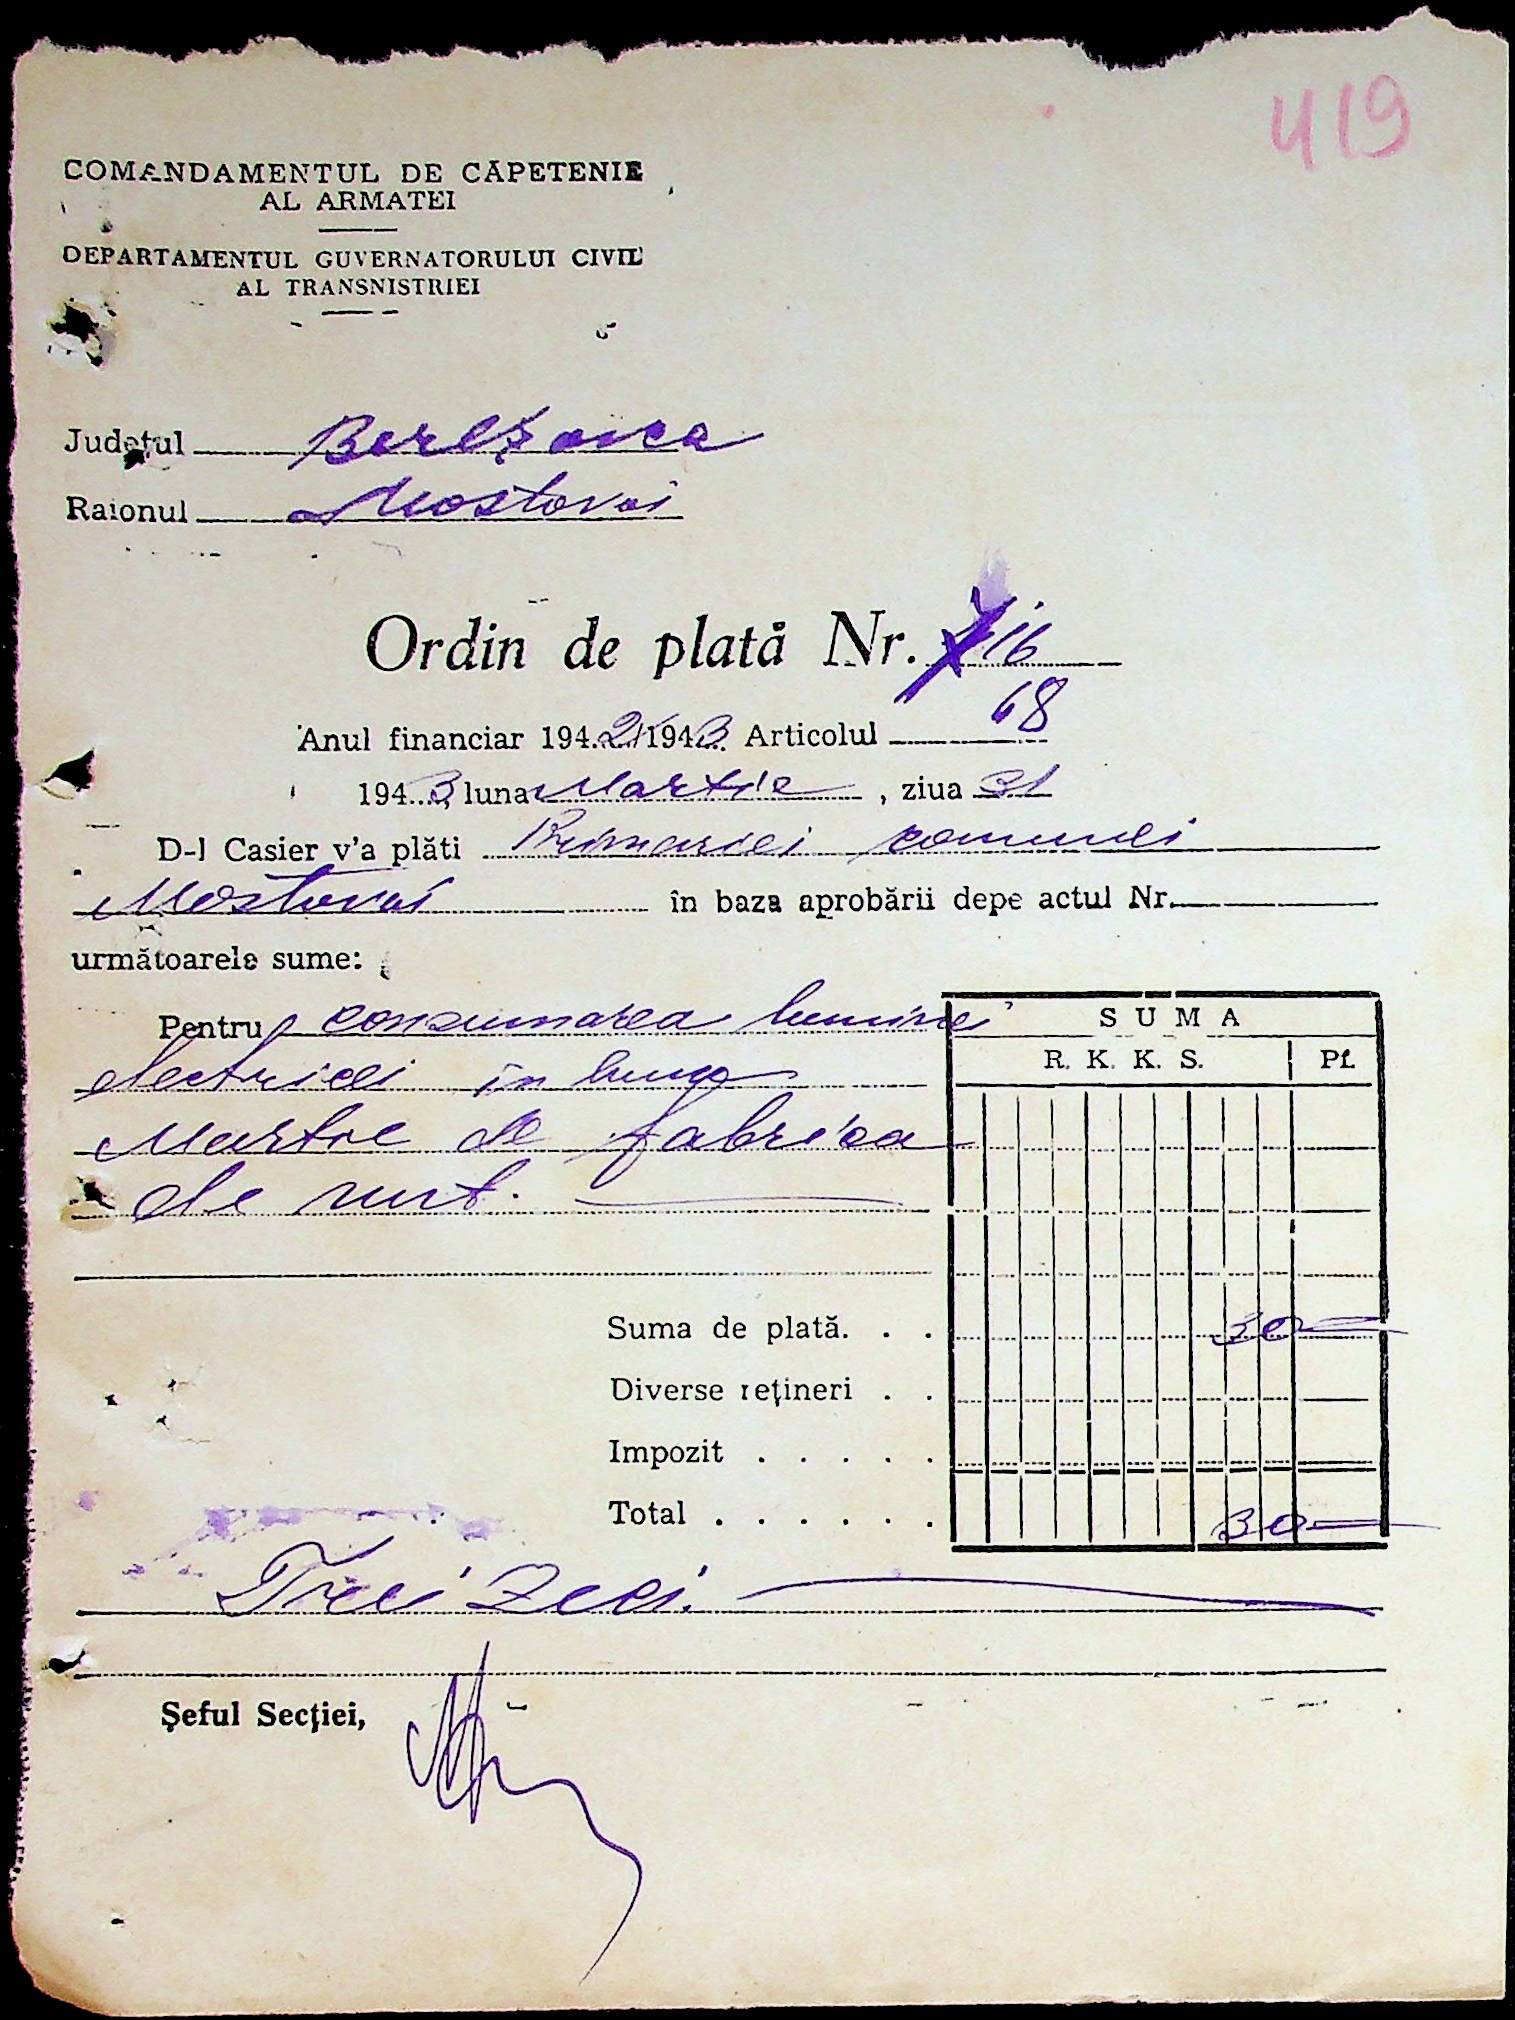 419
COMANDAMENTUL DE CĂPETENIE
AL ARMATEI
DEPARTAMENTUL GUVERNATORULUI CIVIL
AL TRANSNISTRIEI
Județul Berezovca
Raionul Mostovoi
Ordin de plată Nr. 16
Anul financiar 1942/1943 Articolul 68
1943, luna Martie, ziua 31
D-l Casier v'a plăti Primariei comunei
Mostovoi în baza aprobării depe actul Nr.
următoarele sume:
Pentru consumarea luminei
electricei în luna
Martie de fabrica
de unt.
SUMA
R. K. K. S. Pf.
Suma de plată. . . 30—
Diverse rețineri . .
Impozit . . . . .
Total . . . . . . 30—
Trei Zeci.
Șeful Secției,